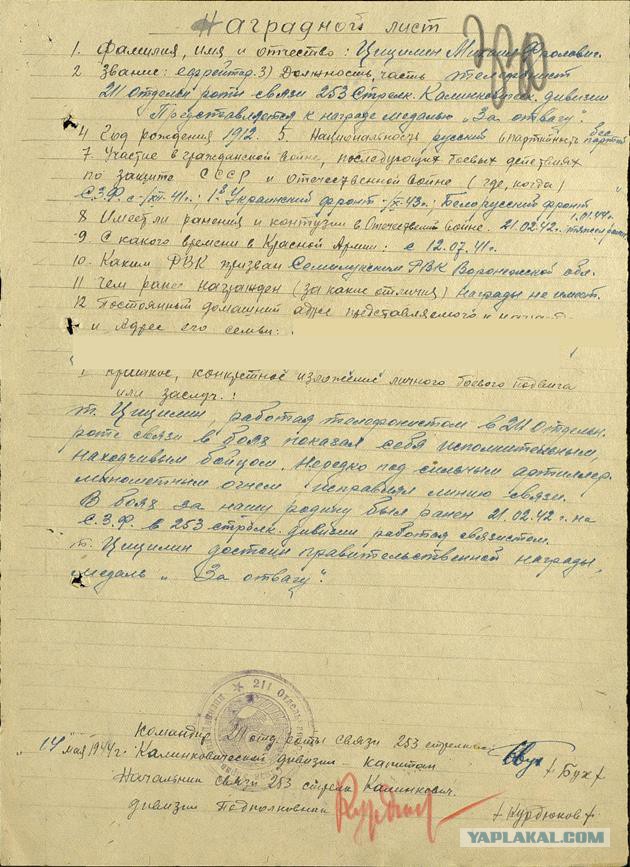 Наградной лист
1. Фамилия, имя и отчество: Цицилин Михаил Фролович.
2 Звание: ефрейтор. 3) Должность, часть телефонист
211 Отдельн роты связи 253 Стрелк. Калинковичск. дивизии
Представляется к награде медалью „За отвагу".
4 Год рождения 1912. 5. Национальность русский 6 партийность бес партий
7. Участие в гражданской войне, последующих боевых действиях
по защите СССР и Отечественной войне (где, когда)
С.З.Ф. с 41г. 1й Украинский фронт 43г., Белорусский фронт 1.01.44г.
8 Имеет ли ранения и контузии в Отечествен войне. 21.02.42г.
9 С какого времени в Красной Армии: с 12.07.41г.
10. Каким РВК призван Семилукским РВК Воронежской обл.
11 Чем ранее награжден (за какие отличия) награды не имеет.
12 Постоянный домашний адрес представляемого к
и Адрес его семьи:
конкретное изложение личного боевого подвига
или заслуг.:
т. Цицилин работая телефонистом в 211 Отдельн.
роте связи в боях показал себя исполнительным,
находчивым бойцом. Нередко под сильным артиллер.
минометным огнем исправлял линию связи.
В боях за нашу родину был ранен 21.02.42г. на
С.З.Ф. в 253 стрелк. дивизии работая связистом.
т. Цицилин достоин правительственной награды,
медаль „За отвагу".
211 Отдель
Командир 211 отд роты связи 253 стрелков
„14" мая 1944г. Калинковической дивизии - капитан /Бух/
Начальник связи 253 стрелк Калинкович.
дивизии Подполковник /Курдюков/
YAPLAKAL.COM